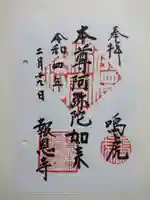 奉拝
鳴虎
本尊阿弥陀如来
報恩寺
令和四年
二月廿六日